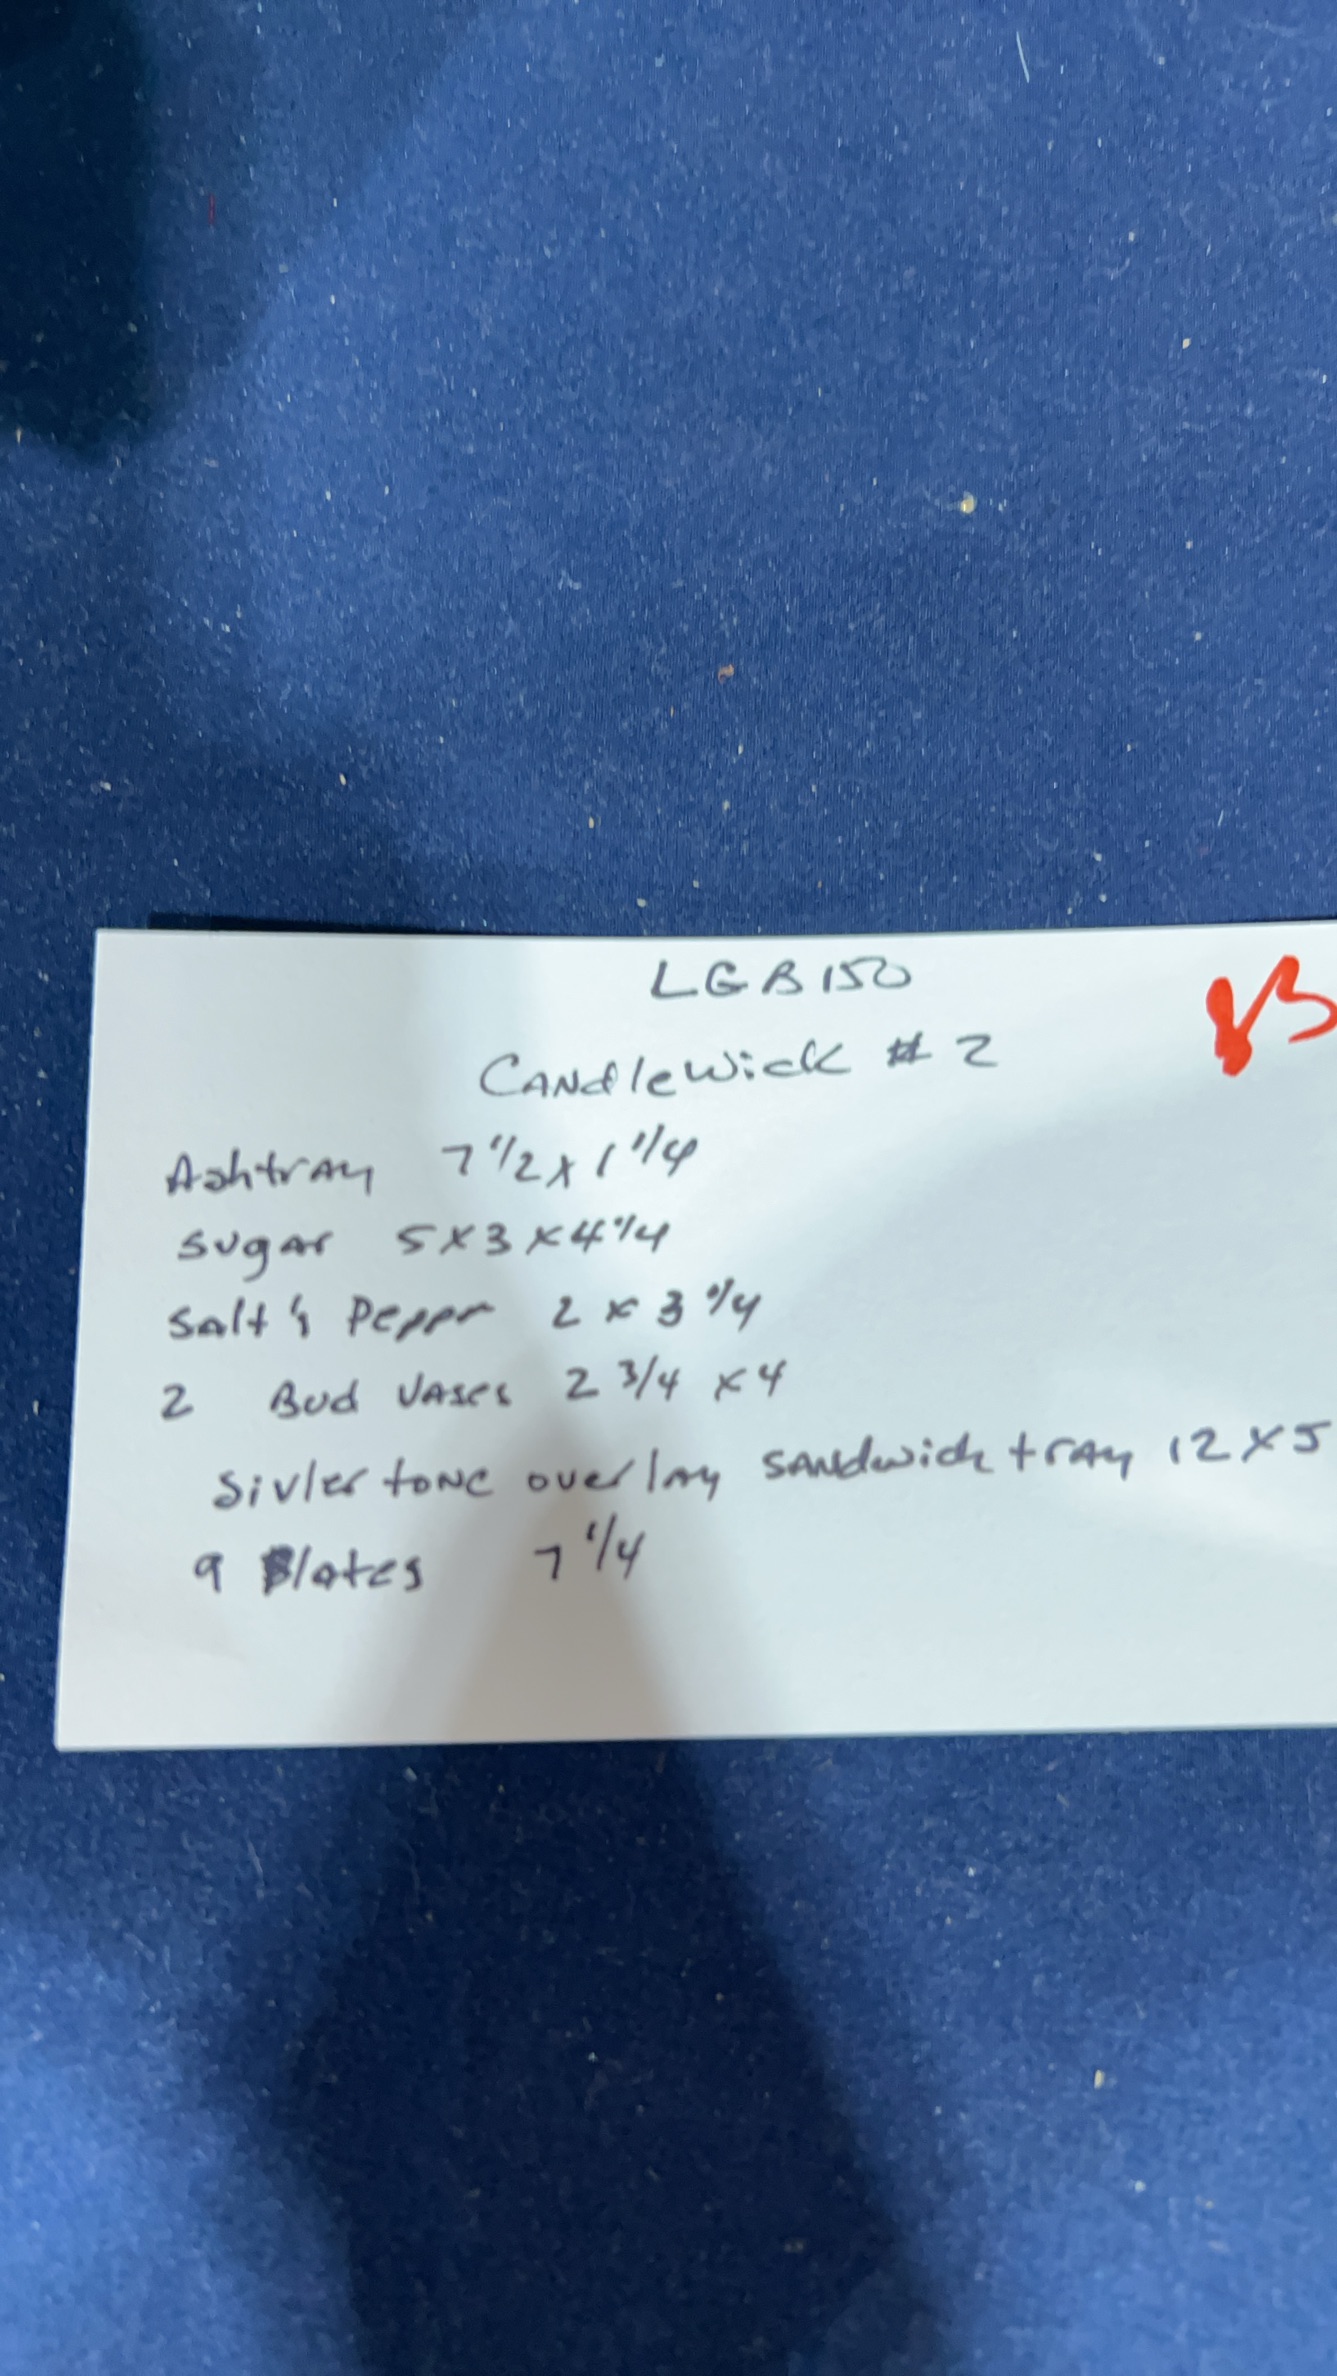 LGB150
Candlewick # 2
Ashtray 7 1/2 x 1 1/4
Sugar 5 x 3 x 4 1/4
Salt & Peppr 2 x 3 1/4
2 Bud Vases 2 3/4 x 4
Sivler tone overlay sandwich tray 12 x 5
9 Plates 7 1/4